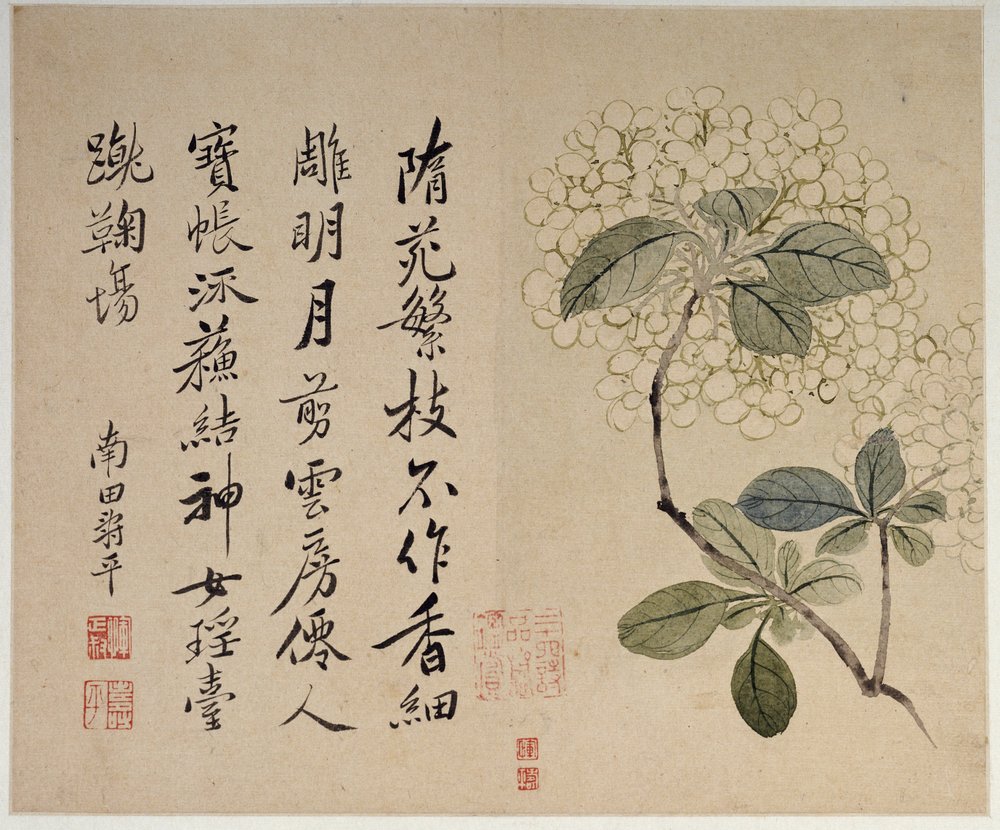 隋苑繁枝不作香細
雕明月剪雲房僊人
寶帳添蘓結神女瑶臺
蹴鞠場
南田壽平
惲正叔
壽平